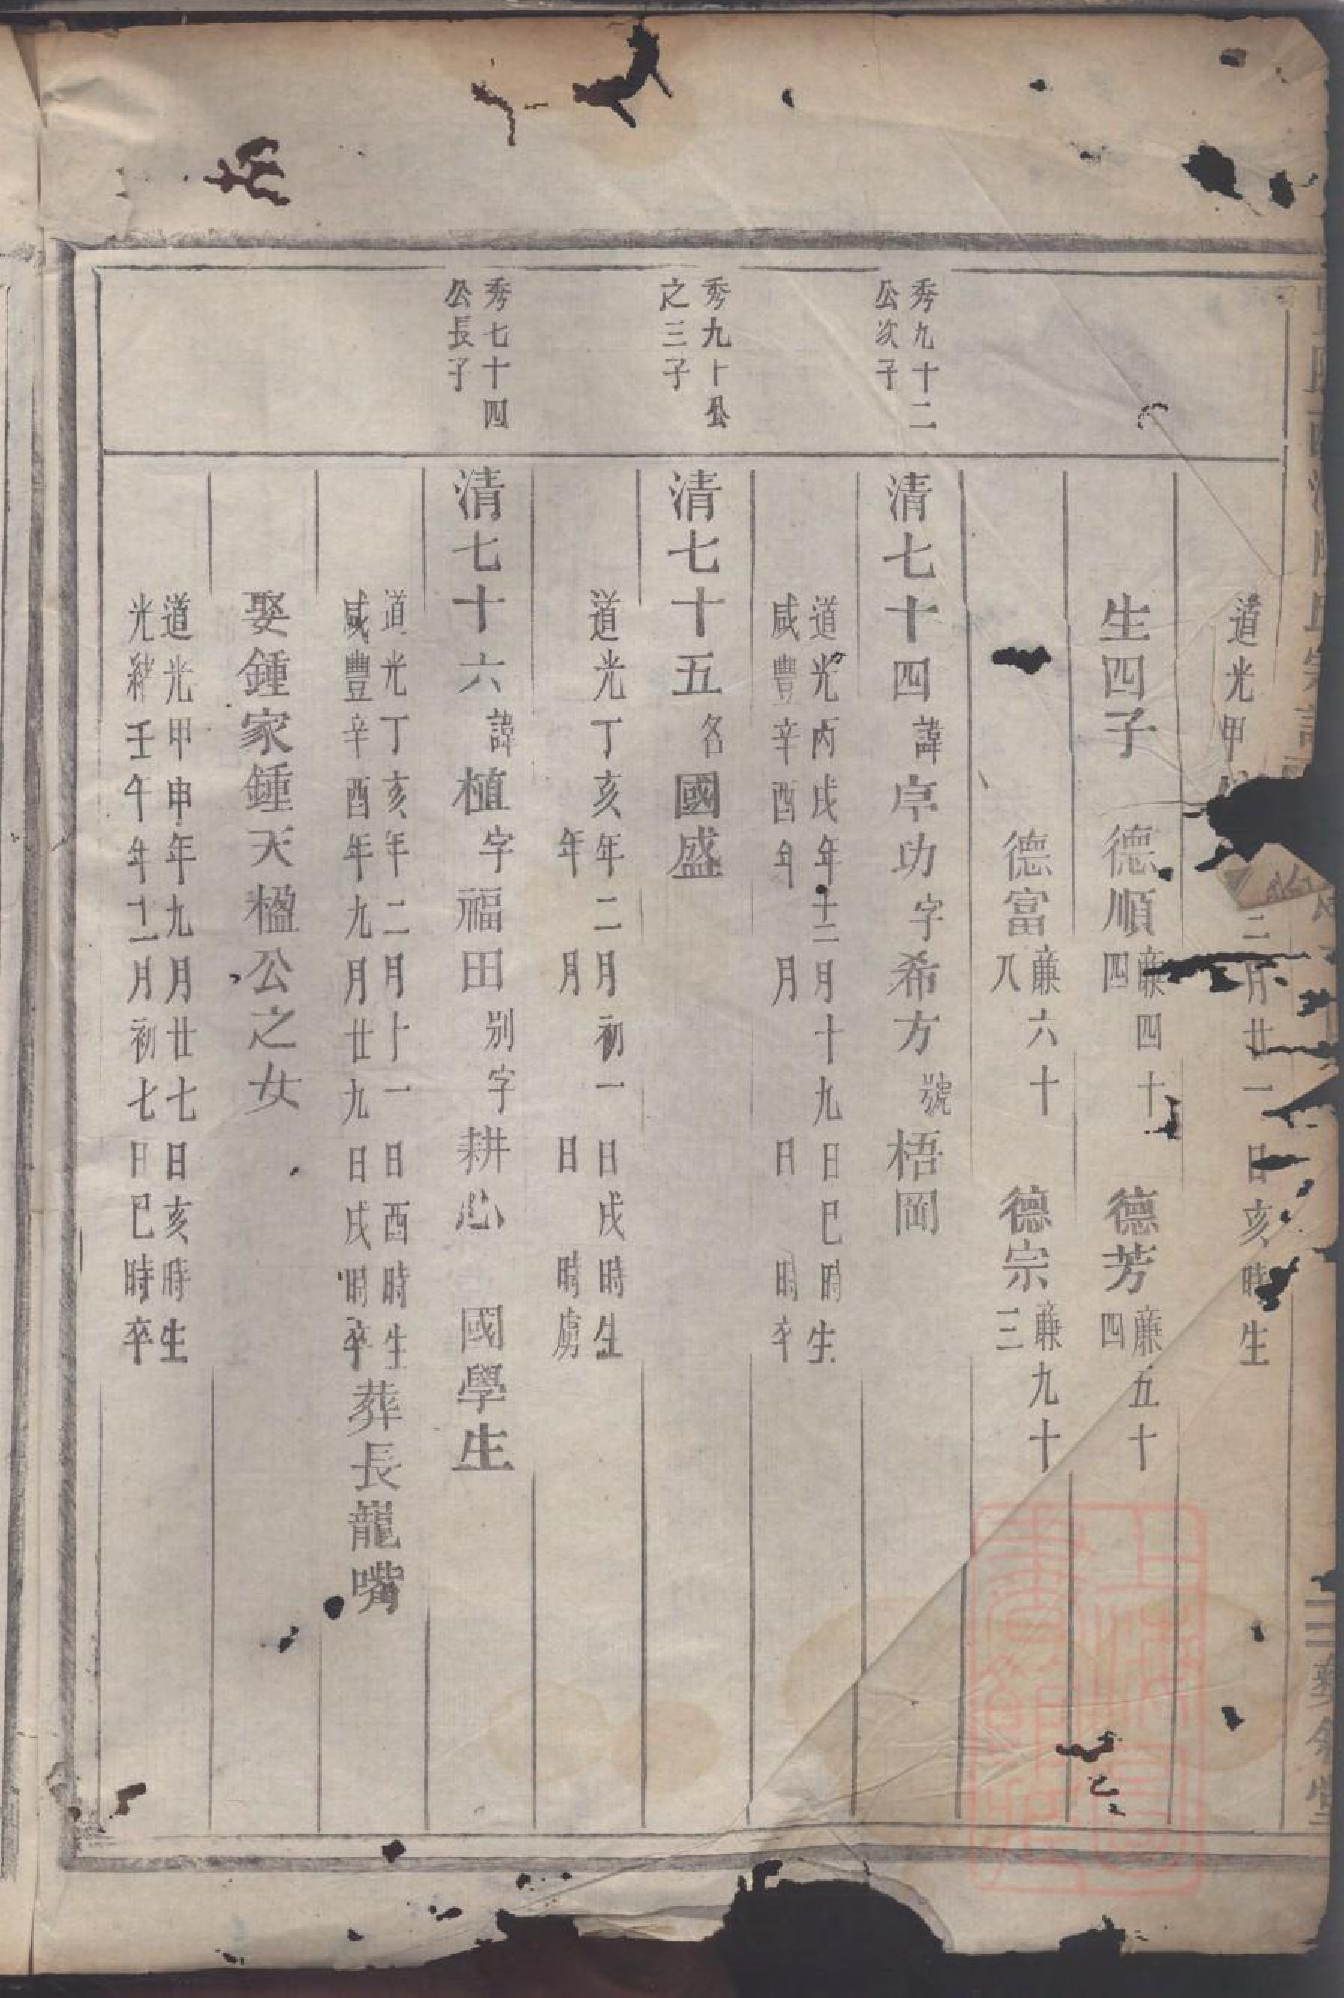 道光甲
三月廿一日亥時生
生四子 德順 蕂四十四 德芳 蕂五十四
德富 蕂六十八 德宗 蕂九十三
秀九十二公次子
清七十四 諱 功 字 希方 號 梧岡
道光丙戌年十二月十九日巳時生
咸豐辛酉年 月 日 時卒
秀九十公之三子
清七十五 名 國盛
道光丁亥年二月初一日戌時生
年 月 日 時
秀七十四公長子
清七十六 諱 植 字 福田 别字 耕心 國學生
道光丁亥年二月十一日酉時生
咸豐辛酉年九月廿九日戌時卒葬長龍嘴
娶鍾家鍾天楹公之女
道光甲申年九月廿七日亥時生
光緒壬午年十二月初七日巳時卒